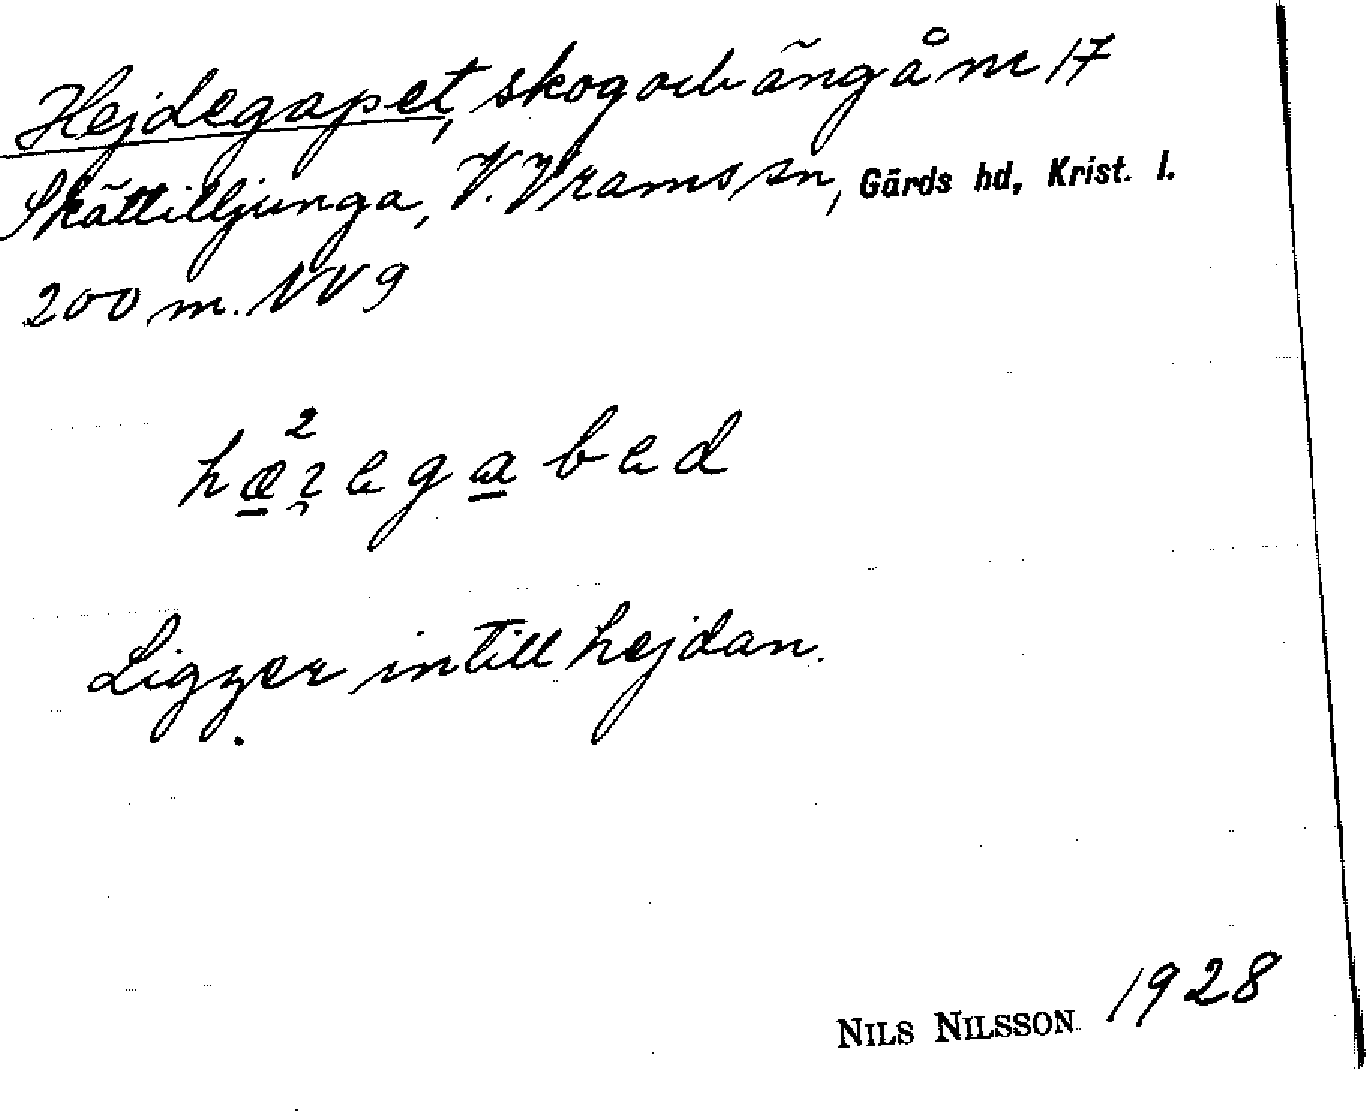 Hejdegapet, skog och äng å nr 17
Skättilljunga, V. Vrams sn, Gärds hd, Krist. l.
200 m. NV 9
Ligger intill hejdan.
NILS NILSSON 1928